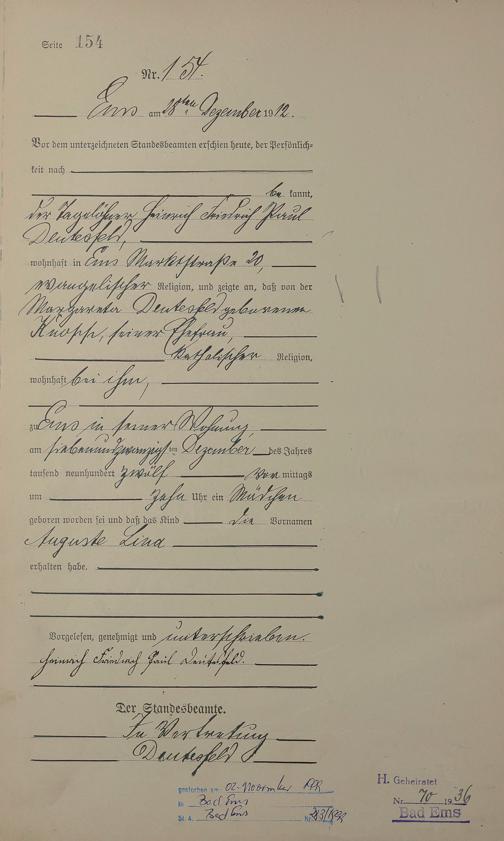 Seite 154
Nr. 154.
Ems am 28ten Dezember 1912.
Vor dem unterzeichneten Standesbeamten erschien heute, der Persönlich-
keit nach
be kannt,
der Tagelöhner Heinrich Friedrich Paul
Deutesfeld,
wohnhaft in Ems Marktstraße 20,
evangelischer Religion, und zeigte an, daß von der
Margareta Deutesfeld geborenen
seiner Ehefrau,
katholischer Religion,
wohnhaft bei ihm,
zu Ems in seiner Wohnung,
am siebenundzwanzigsten Dezember des Jahres
tausend neunhundert zwölf Vor mittags
um zehn Uhr ein Mädchen
geboren worden sei und daß das Kind die Vornamen
Auguste Lina
erhalten habe.
Vorgelesen, genehmigt und unterschrieben.
Heinrich Friedrich Paul Deutesfeld.
Der Standesbeamte.
In Vertretung
Deutesfeld
gestorben am 02. November
in Bad Ems
St. A. Bad Ems Nr.
H. Geheiratet
Nr. 70 1936
Bad Ems